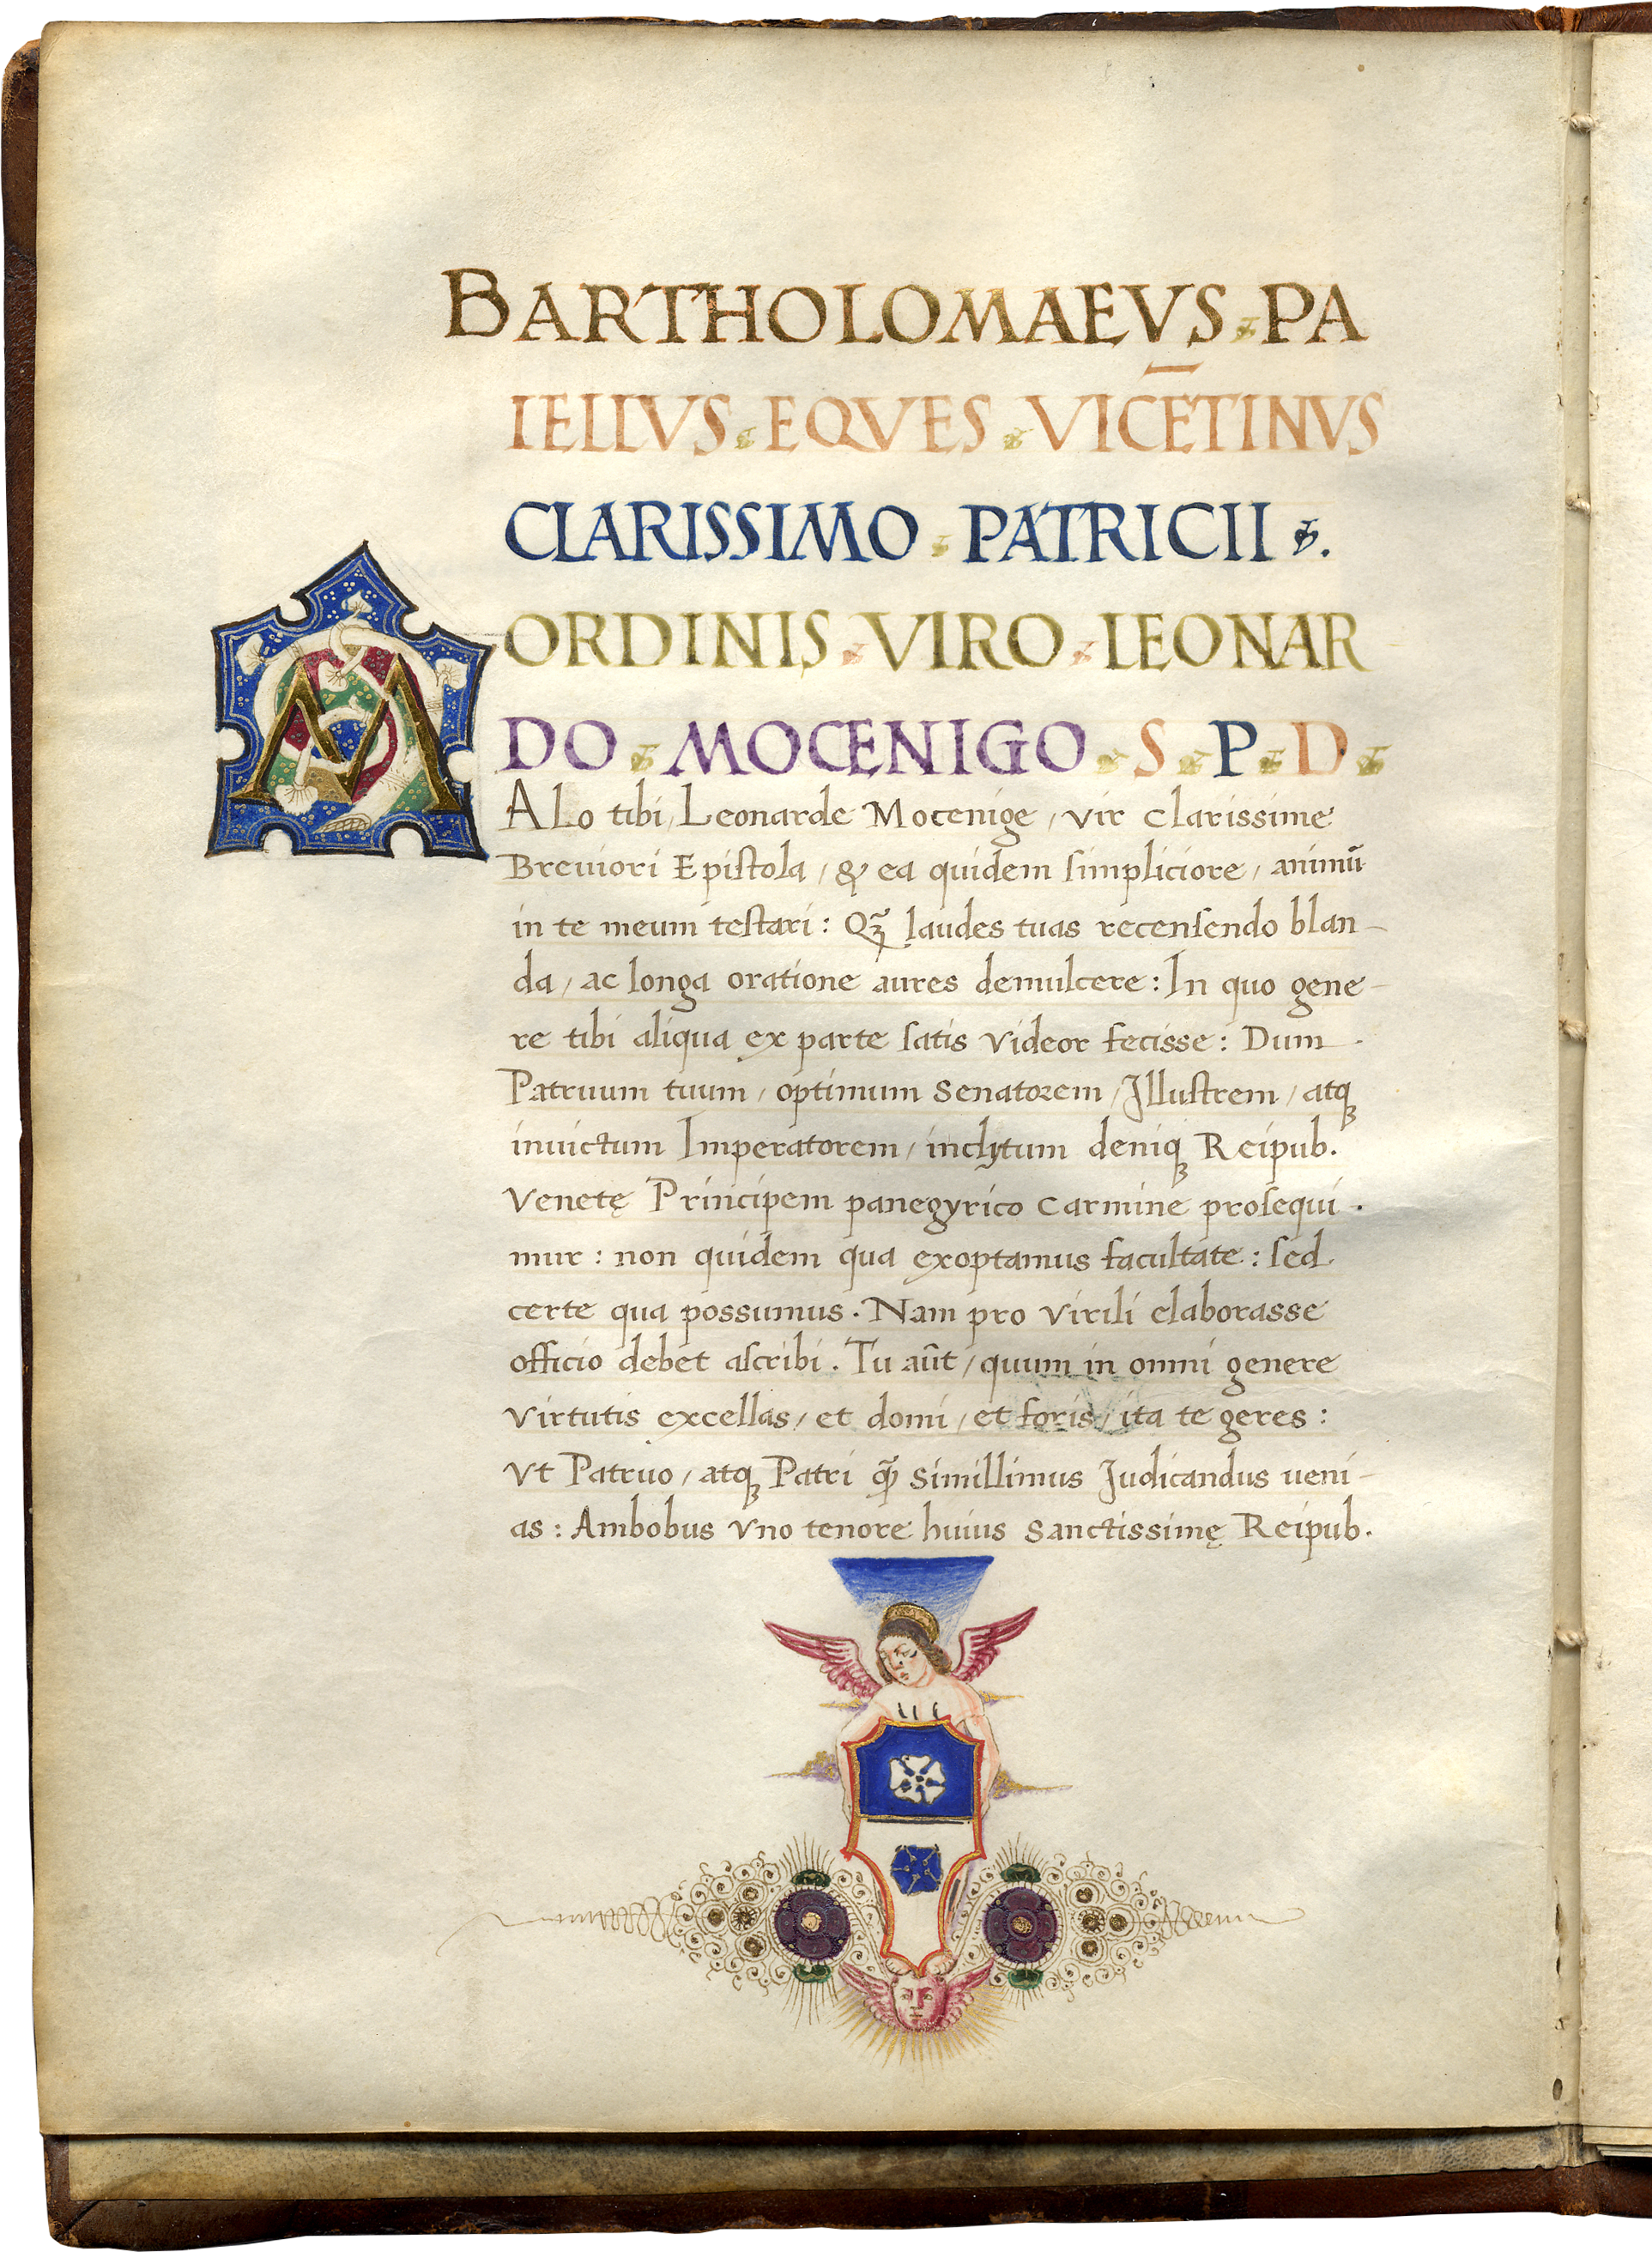 BARTHOLOMAEVS PA
IELLVS EQVES VICĒTINVS
CLARISSIMO PATRICII .
ORDINIS VIRO LEONAR
DO MOCENIGO S P D
MALo tibi, Leonarde Mocenige, vir clarissime
Breuiori Epiſtola, & ea quidem ſimpliciore, animū
in te meum teſtari: Qꝫ̃ laudes tuas recenſendo blan-
da, ac longa oratione aures demulcere: In quo gene-
re tibi aliqua ex parte ſatis videor fecisse: Dum
Patruum tuum, optimum Senatorem, Illuſtrem, atqꝫ
inuictum Imperatorem, inclytum deniqꝫ Reipub.
Venetę Principem panegyrico carmine proſequi
mur: non quidem qua exoptamus facultate: ſed
certe qua possumus. Nam pro virili elaborasse
officio debet aſcribi. Tu aūt, quum in omni genere
virtutis excellas, et domi, et foris, ita te geres:
Vt Patruo, atqꝫ Patri qꝫ̃ simillimus Iudicandus ueni-
as: Ambobus vno tenore huius Sanctissimę Reipub.